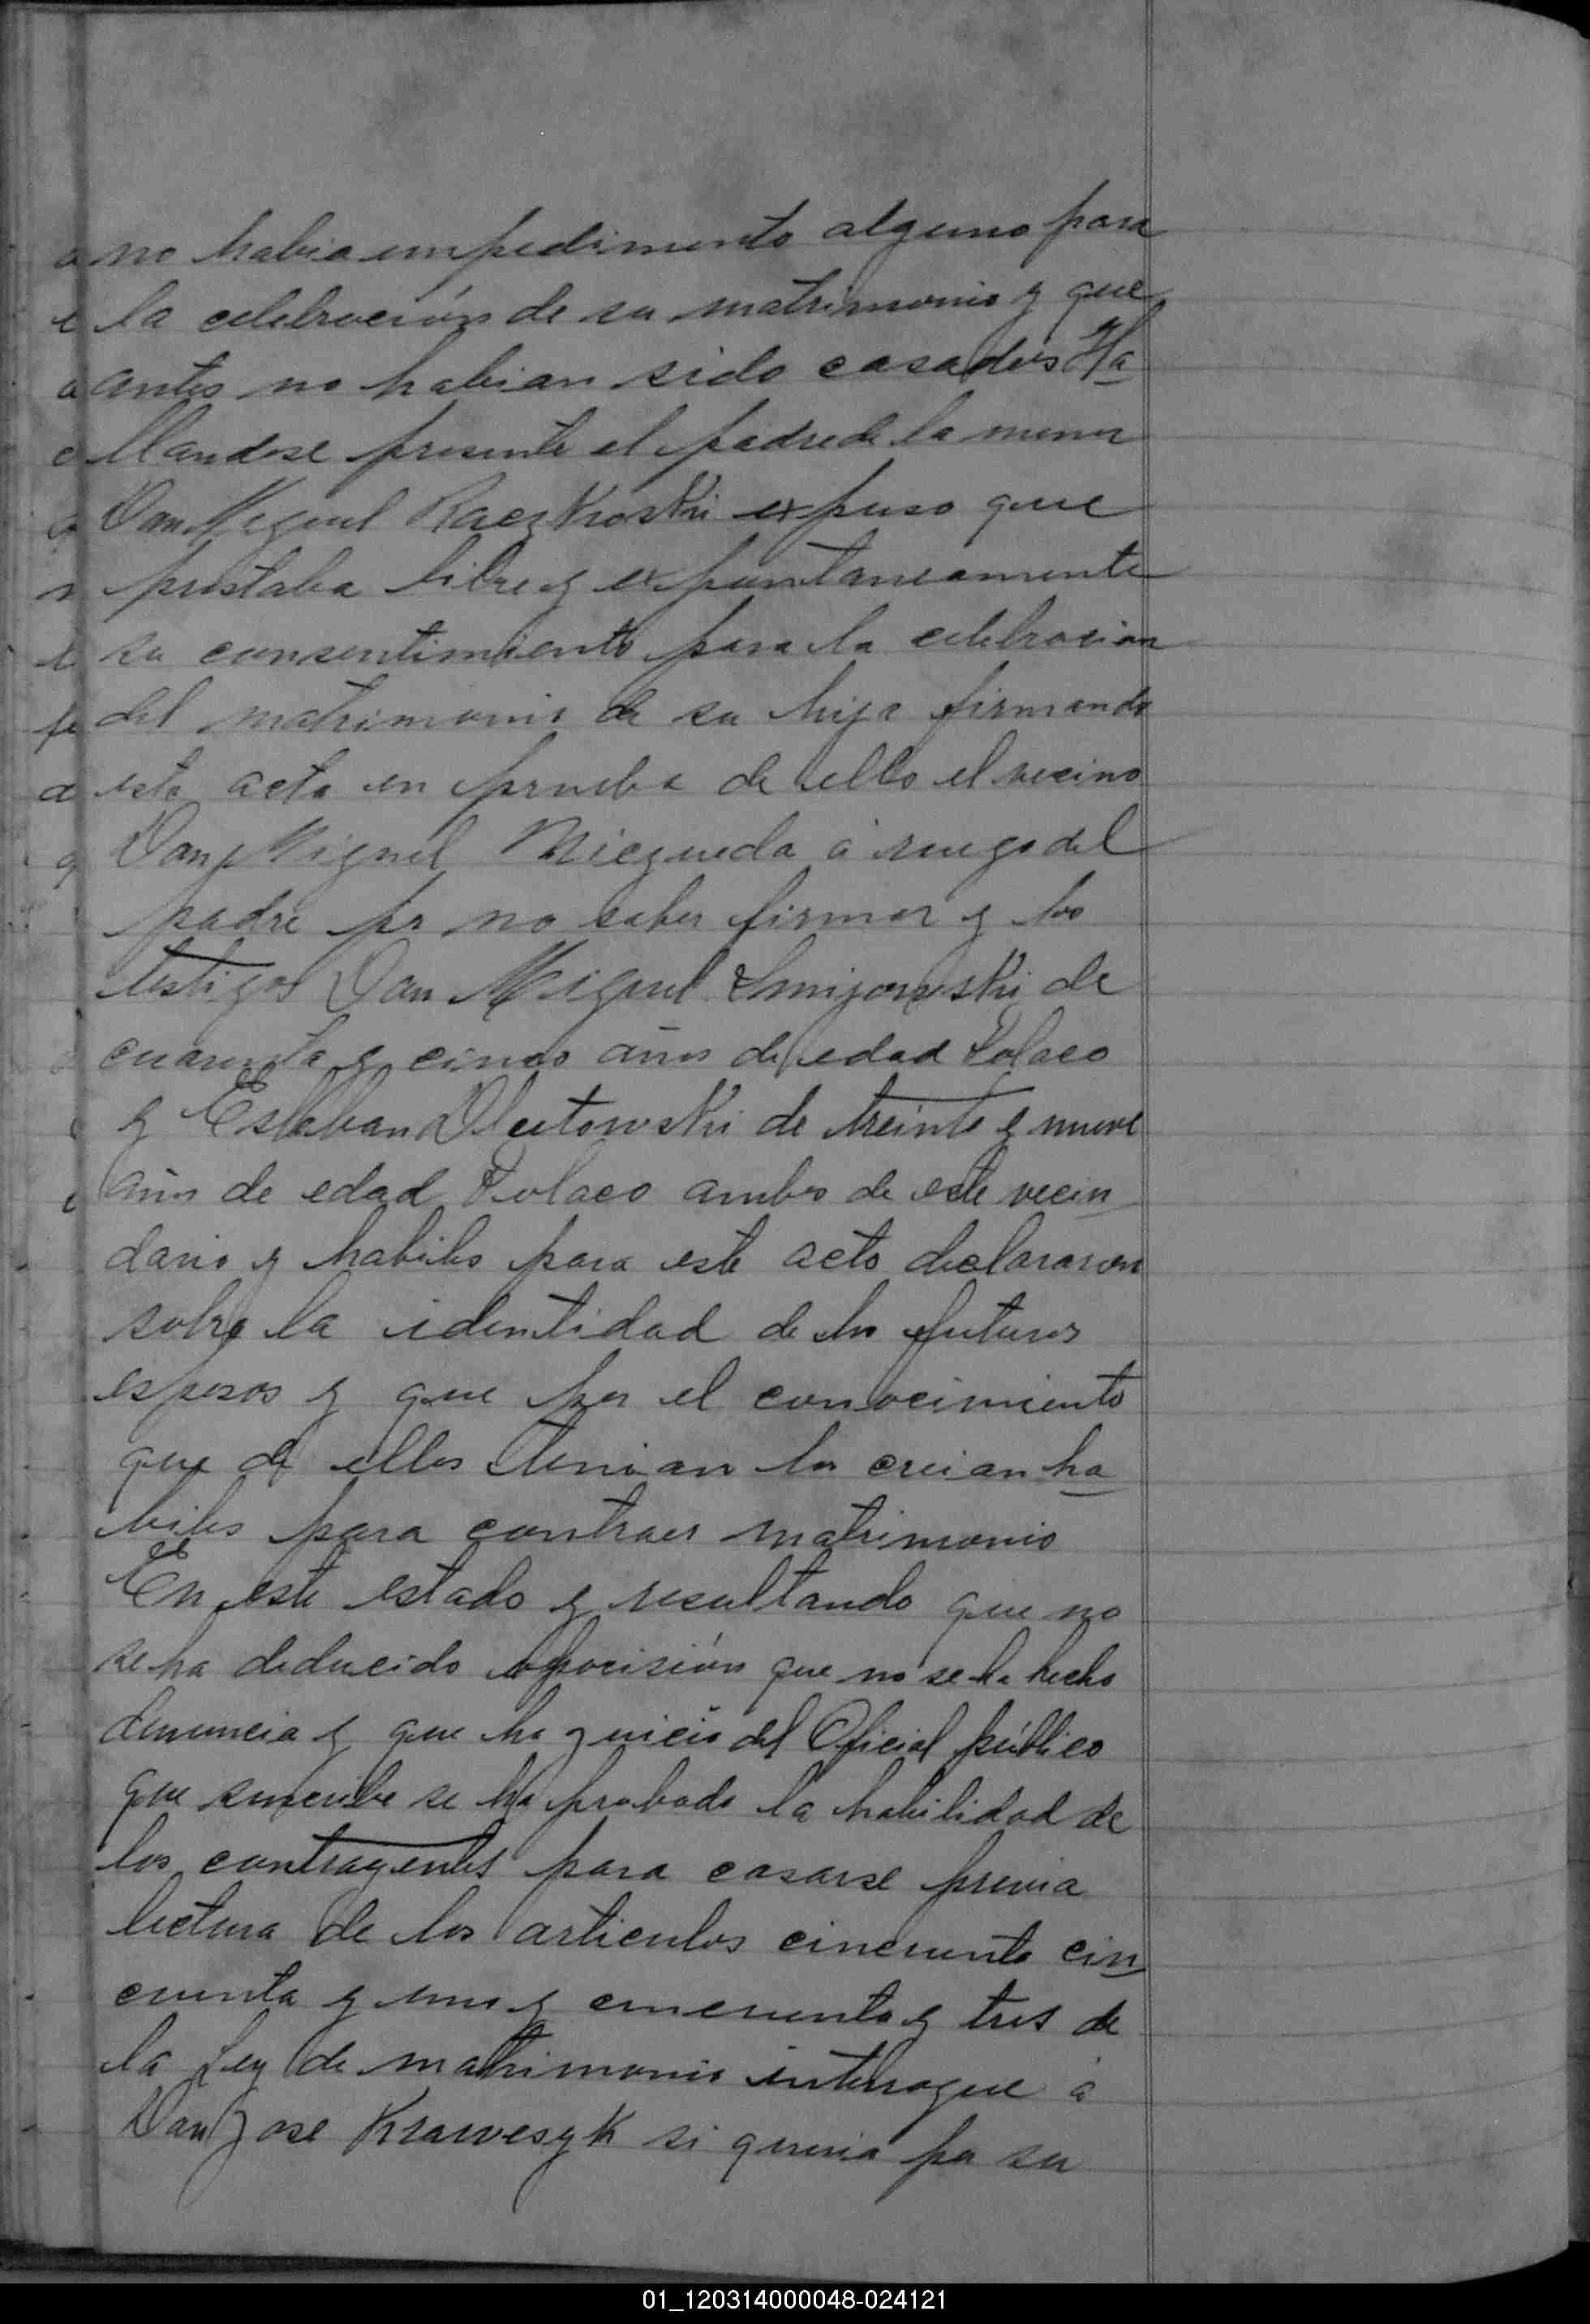 no habia impedimento alguno para
la celebración de su matrimonio y que
antes no habian sido casados Ha
llandose presente el padre de la menor
Don Miguel Raczkroski expuso que
prestaba libre y expuntaneamente
su consentimiento para la celebracion
del matrimonio de su hija firmando
esta acta en prueba de ello el vecino
Don Miguel Miczueda á ruego del
padre pr no saber firmar y los
testigos Don Miguel Smijowski de
cuarenta y cinco años de edad Polaco
y Esteban Dlutowski de treinta y nueve
años de edad Polaco ambos de este vecin
dario y habiles para este acto declararon
sobre la identidad de los futuros
esposos y que por el conocimiento
que de ellos tenian los creian ha
biles para contraer matrimonio
En este estado y resultando que no
se ha deducido oposisión que no se ha hecho
denuncia y que ha juicio del Oficial público
que suscribe se ha probado la habilidad de
los contrayentes para casarse previa
lectura de los articulos cincuenta cin
cuenta y uno y cincuenta y tres de
la Ley de matrimonio interrogue á
Don Jose Krawesyk si queria por su
01_120314000048-024121